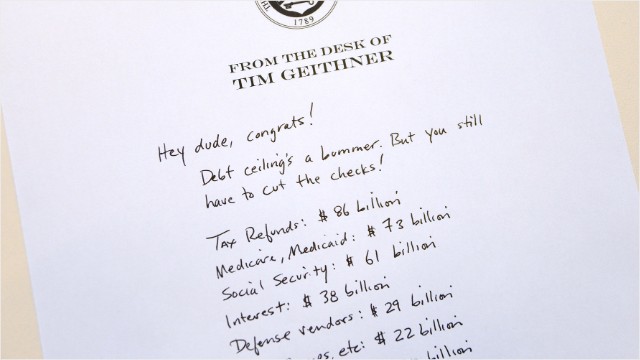 1789
FROM THE DESK OF
TIM GEITHNER
Hey dude, congrats!
Debt ceiling's a bummer. But you still
have to cut the checks!
Tax Refunds: $ 86 billion
Medicare, Medicaid: $ 73 billion
Social Security: $ 61 billion
Interest: $ 38 billion
Defense vendors: $ 29 billion
etc: $ 22 billion
billion